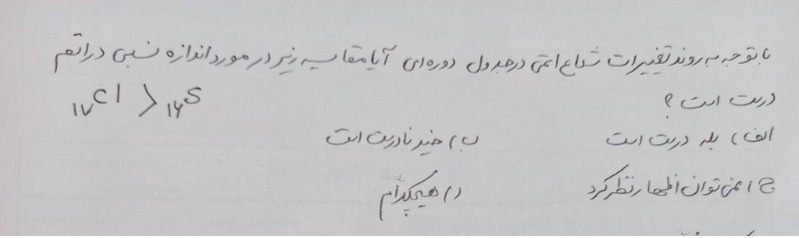 با توجه به روند تغییرات شعاع اتمی در جدول دوره‌ای آیا مقایسه زیر در مورد اندازه نسبی دو اتم
درست است؟ ₁₇Cl > ₁₆S
الف) بله درست است ب) خیر نادرست است
ج) نمی توان اظهار نظر کرد د) هیچکدام